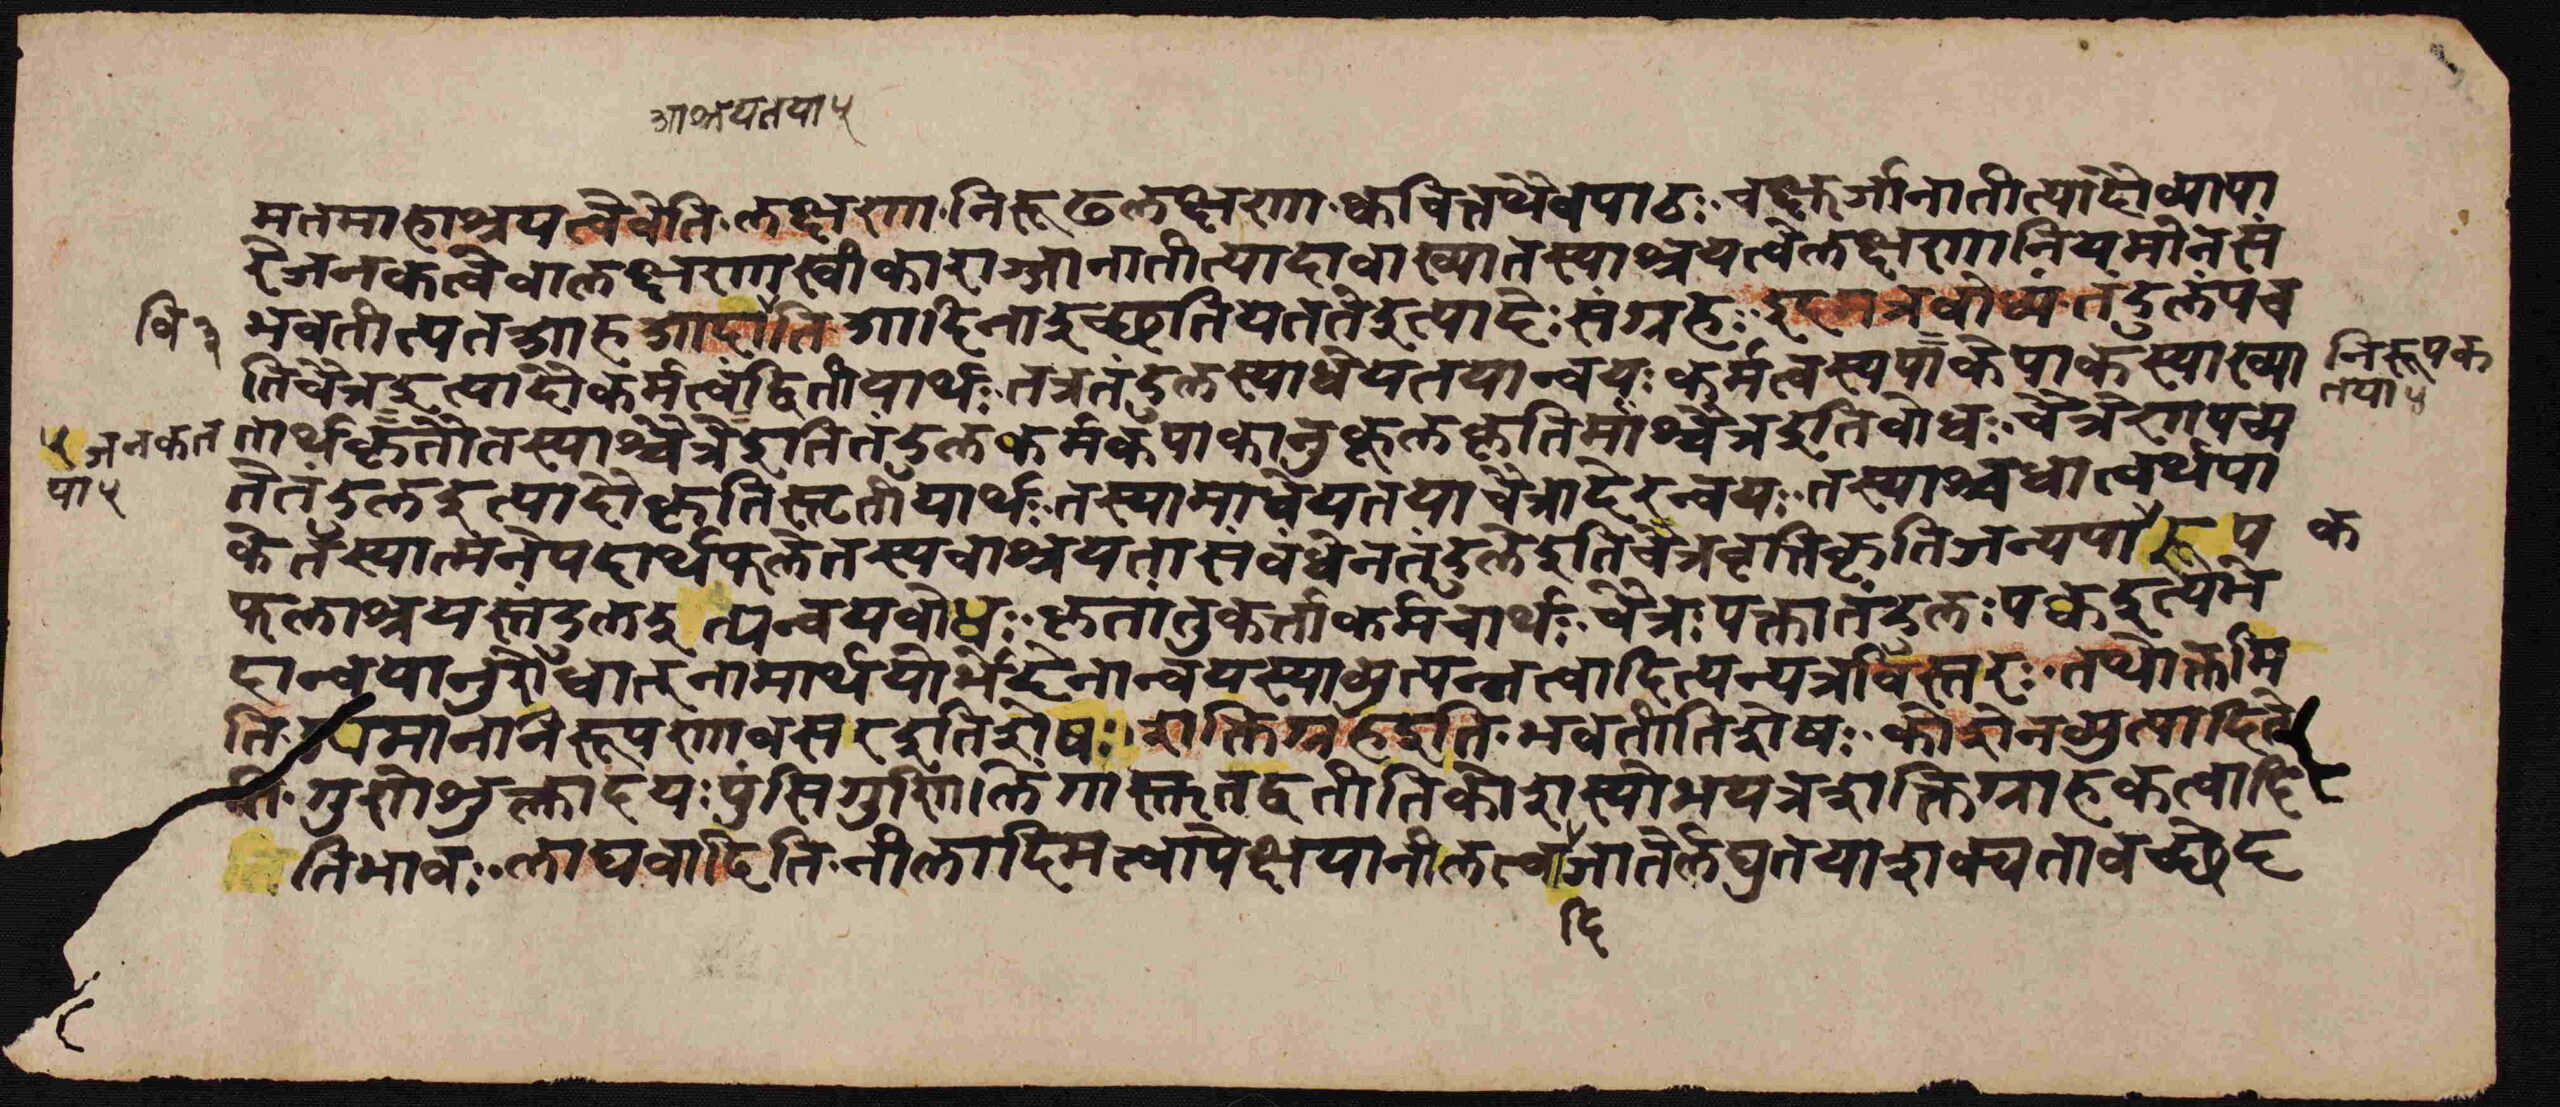 आश्रयतया ५
मतमाहाश्रयत्वे वेति लक्षणा निरूढलक्षणा क्वचित्तथैव पाठः चक्षुर्जानातीत्यादौ व्यापा
रे जनकत्वे वा लक्षणास्वीकाराज्जानातीत्यादावाख्यातस्याश्रयत्वे लक्षणानियमो न सं
भवतीत्यत आह आदाविति आदिना इच्छति यतते इत्यादेः संग्रहः इदमत्र बोध्यं तंडुलं पच
वि ३
ति चैत्र इत्यादौ कर्मत्वं द्वितीयार्थः तत्र तंडुलस्याधेयतयान्वयः कर्मत्वस्य पाके पाकस्याख्या
निरूपक
तया ५
तार्थकृतौ तस्याश्चैत्रे इति तंडुलकर्मकपाकानुकूलकृतिमांश्चैत्र इति बोधः चैत्रेण पच्य
५ जनकत
या ५
ते तंडुल इत्यादौ कृतिस्तृतीयार्थः तस्यामाधेयतया चैत्रादेरन्वयः तस्याश्च धात्वर्थपा
के तस्यात्मनेपदार्थफले तस्य चाश्रयतासंबंधेन तंडुले इति चैत्रवृत्तिकृतिजन्यपा रूप
क
फलाश्रयस्तंडुल इत्यन्वयबोधः कृतां तु कर्त्ता कर्म चार्थः चैत्रः पक्ता तंडुलः पक्व इत्यभे
दान्वयानुरोधात् नामार्थयोर्भेदेनान्वयस्याव्युत्पन्नत्वादित्यन्यत्र विस्तरः तथोक्तमि
ति उपमानानिरूपणावसर इति शेषः शक्तिग्रह इति भवतीति शेषः कोशेन व्युत्पादिते
ति गुणे शुक्लादयः पुंसि गुणिलिंगास्तु तद्वतीति कोशस्योभयत्र शक्तिग्राहकत्वादि
ति भावः लाघवादिति नीलादिमत्त्वापेक्षया नीलत्वजातेर्लघुतया शक्यतावच्छेद
दि